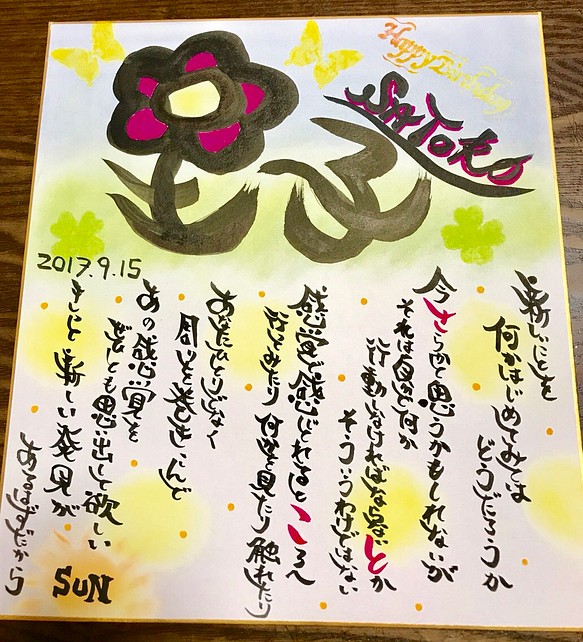 Happy Birthday
SATOKO
2017.9.15
新しいことを
何かはじめてみては
どうだろうか
今さらかと思うかもしれないが
それは自分が何か
行動しなければならないとか
そういうわけではない
感覚で感じとれるところへ
行ってみたり 何かを見たり 触れたり
あなたひとりじゃなく
周りを巻きこんで
あの感覚を
是非とも思い出して欲しい
きっと新しい発見が
あるはずだから
SUN